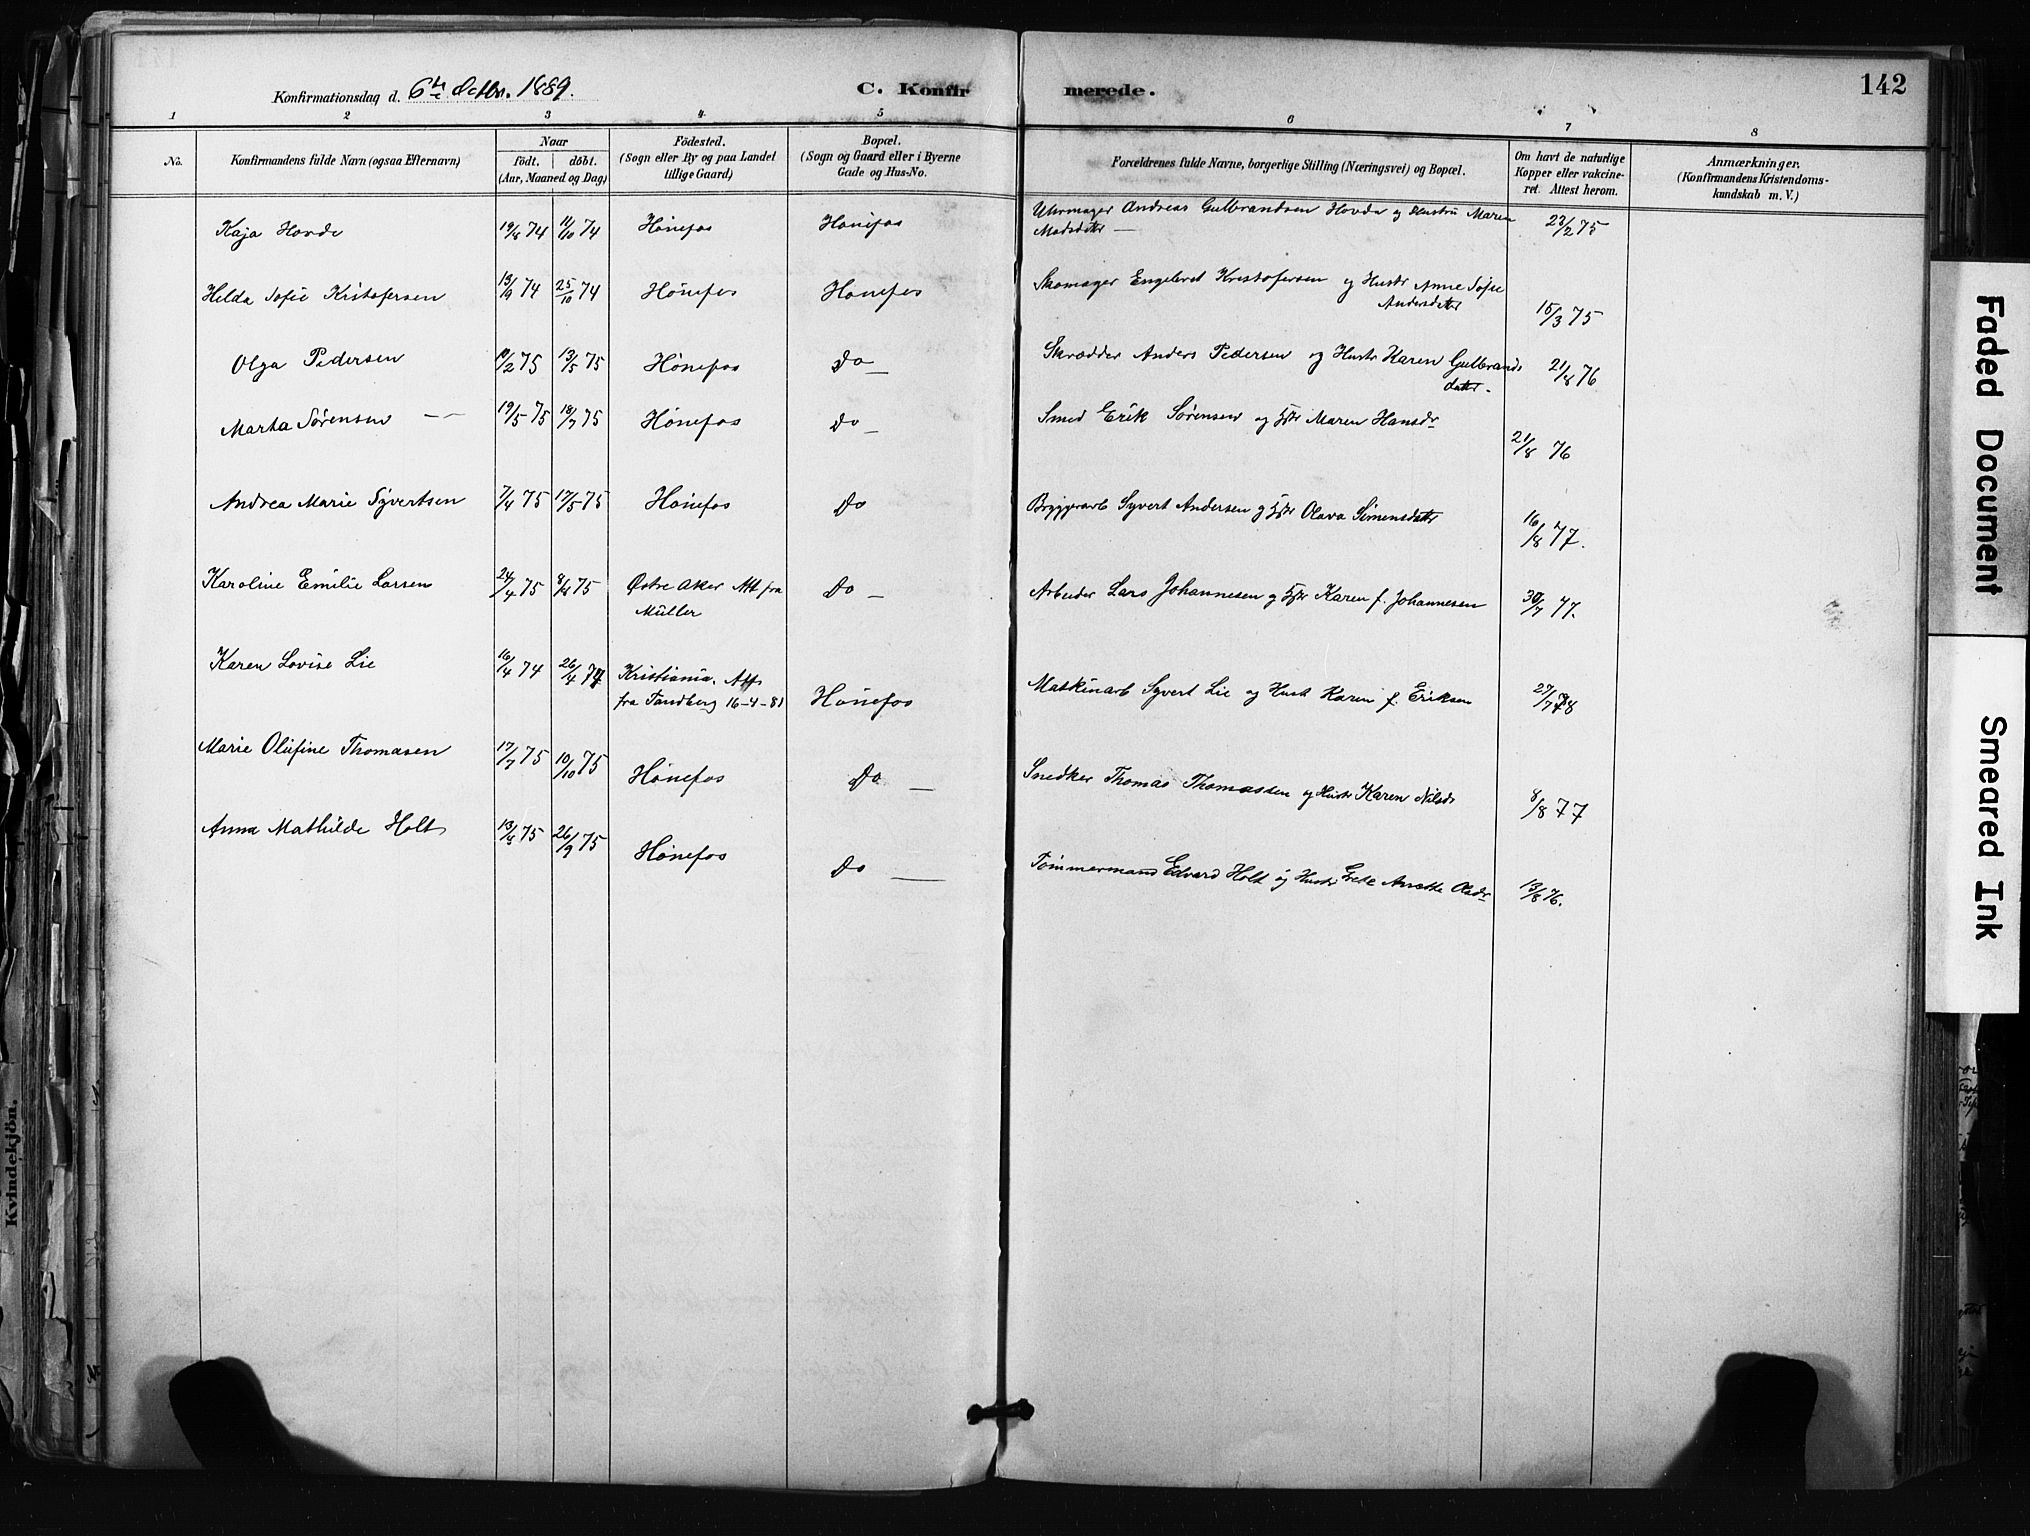 Konfirmationsdag d. 6te Octbr. 1889.
C. Konfirmerede.
142
1 2 3 4 5 6 7 8
No.
Konfirmandens fulde Navn (ogsaa Efternavn)
Naar
födt. döbt.
(Aar, Maaned og Dag)
Födested.
(Sogn eller By og paa Landet
tillige Gaard)
Bopæl.
(Sogn og Gaard eller i Byerne
Gade og Hus-No.
Forældrenes fulde Navne, borgerlige Stilling (Næringsvei) og Bopæl.
Om havt de naturlige
Kopper eller vakcine-
ret. Attest herom.
Anmærkninger.
(Konfirmandens Kristendoms-
kundskab m. V.)
Kaja Hovde 19/8 74 11/10 74 Hönefos Hönefos Uhrmager Andreas Gulbrandsen Hovde og Hustru Maren
Madsdatter — 23/2 75
Helda Sofie Kristofersen 13/9 74 25/10 74 Hönefos Hönefos Skomager Engebret Kristofersen og Hustr Anne Sofie
Andersdatter 15/3 75
Olga Pedersen 10/2 75 13/5 75 Hönefos Do — Skrædder Anders Pedersen og Hustr Karen Gulbrands
datter. 21/8 76
Marta Sörensen 19/5 75 18/7 75 Hönefos Do — Smed Erik Sörensen og Hstr Maren Hansdr
21/8 76
Andrea Marie Syvertsen 7/4 75 17/5 75 Hönefos Do Bryggerarb Syvert Andersen og Hstr Olava Simensdatter
16/8 77.
Karoline Emilie Larsen 24/4 75 8/8 75 Östre Aker Att fra
Müller Do — Arbeider Lars Johannesen og Hstr Karen f. Johannesen 30/7 77.
Karen Lovise Lie 16/4 74 26/4 74 Kristiania. Att
fra Tandberg 16-4-81 Hönefos Maskinarb Syvert Lie og Hust Karen f. Eriksen 27/7 78
Marie Olufine Thomasen 17/7 75 10/10 75 Hönefos Do — Snedker Thomas Thomassen og Hustr Karen Nilsdr 8/8 77
Anna Mathilde Holt 13/8 75 26/9 75 Hönefos Do — Tömmermand Edvard Holt og Hustr Grete Anette Olsdr 13/8 76.
Kvindekjön.
Faded Document
Smeared Ink